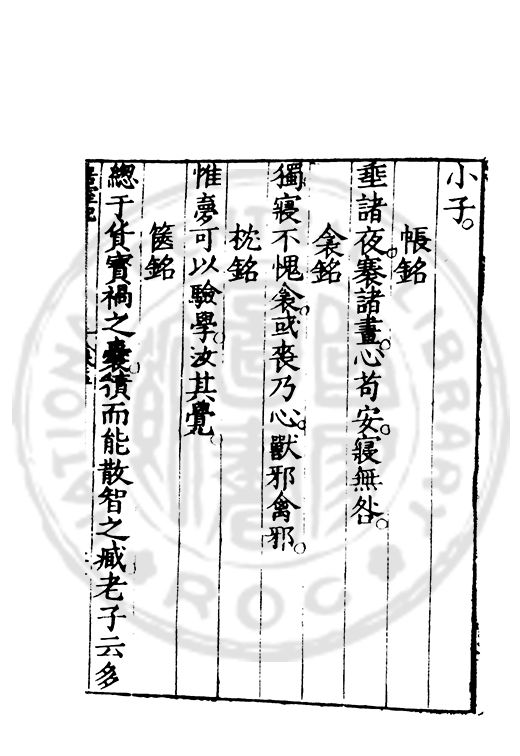 小子。
帳銘
垂諸夜。褰諸晝。心苟安。寢無咎。
衾銘
獨寢不愧衾。或喪乃心。獸邪禽邪。
枕銘
惟夢可以驗學。汝其覺。
篋銘
總于貨寶禍之囊。積而能散智之臧。老子云多